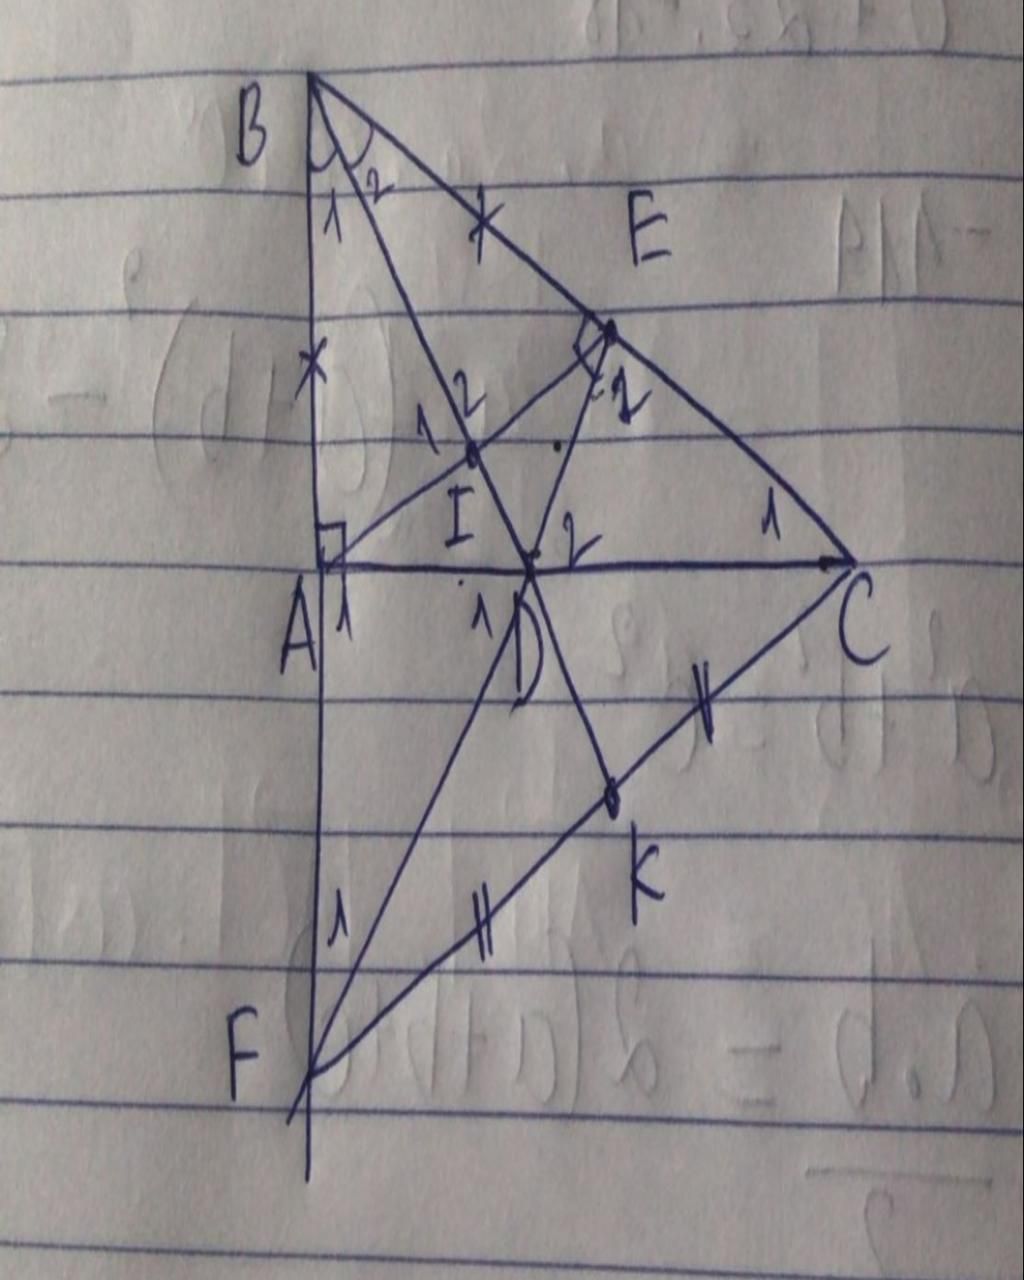 B
1 2
E
2
1
2
I
1
2
A 1
1 D
C
K
1
F